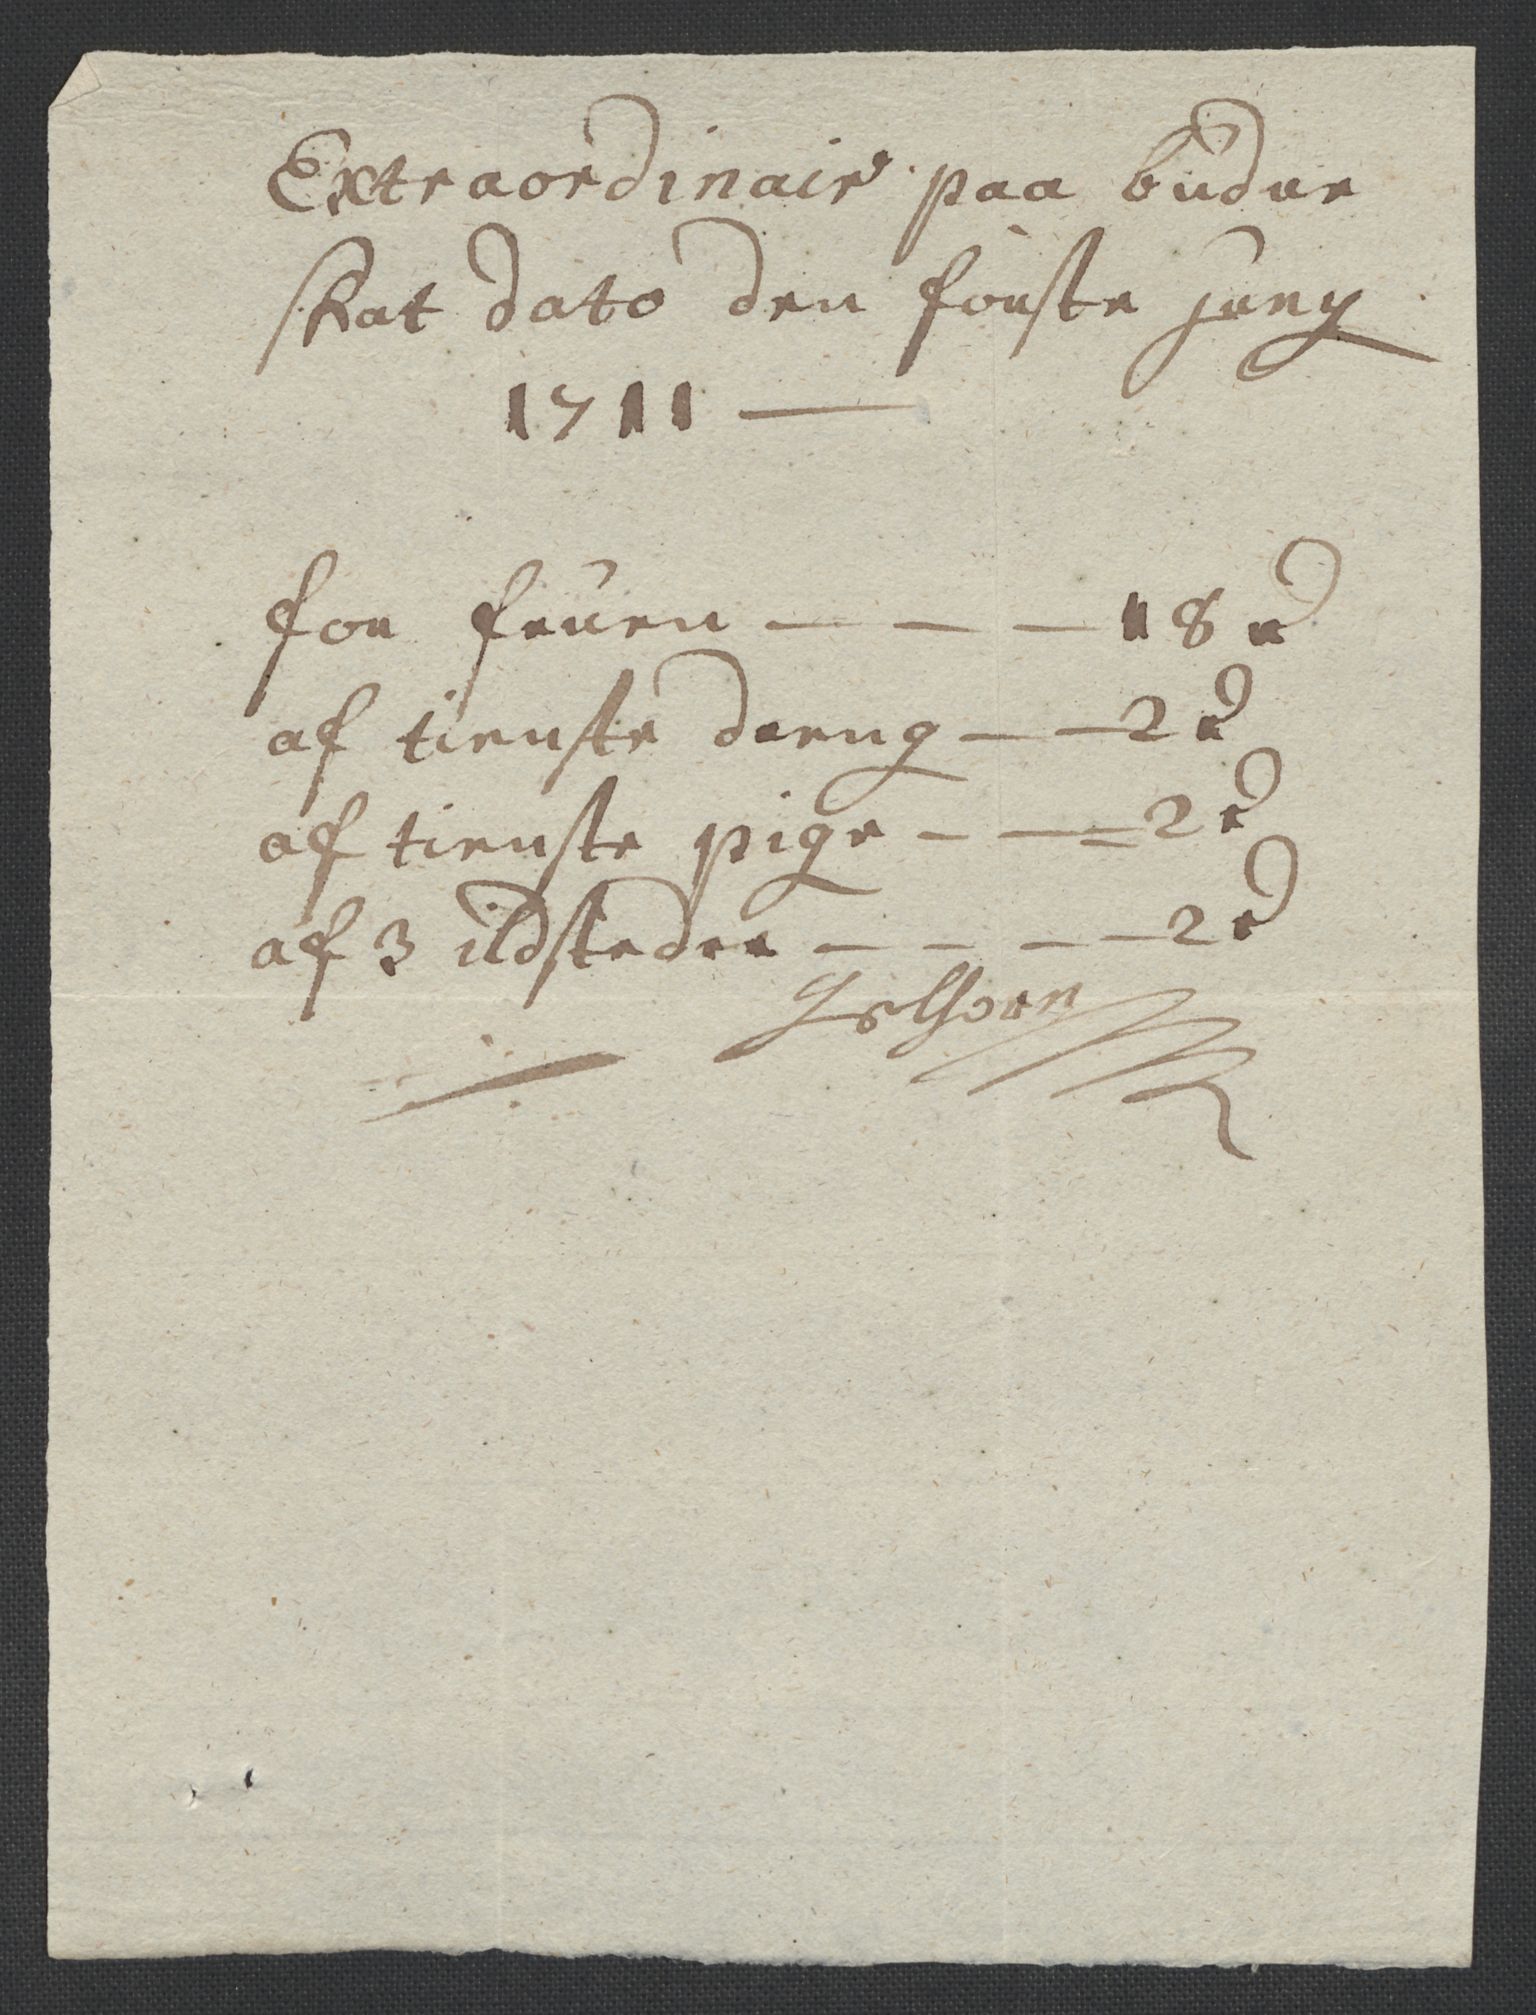 Extraordinair paa buden
skat dato den förste juny
1711 —
for fruen — — — 18 r
af tienste dreng — — 2 r
af tienste pige — — = 2 r
af 3 ildsteder — — — — 2 r